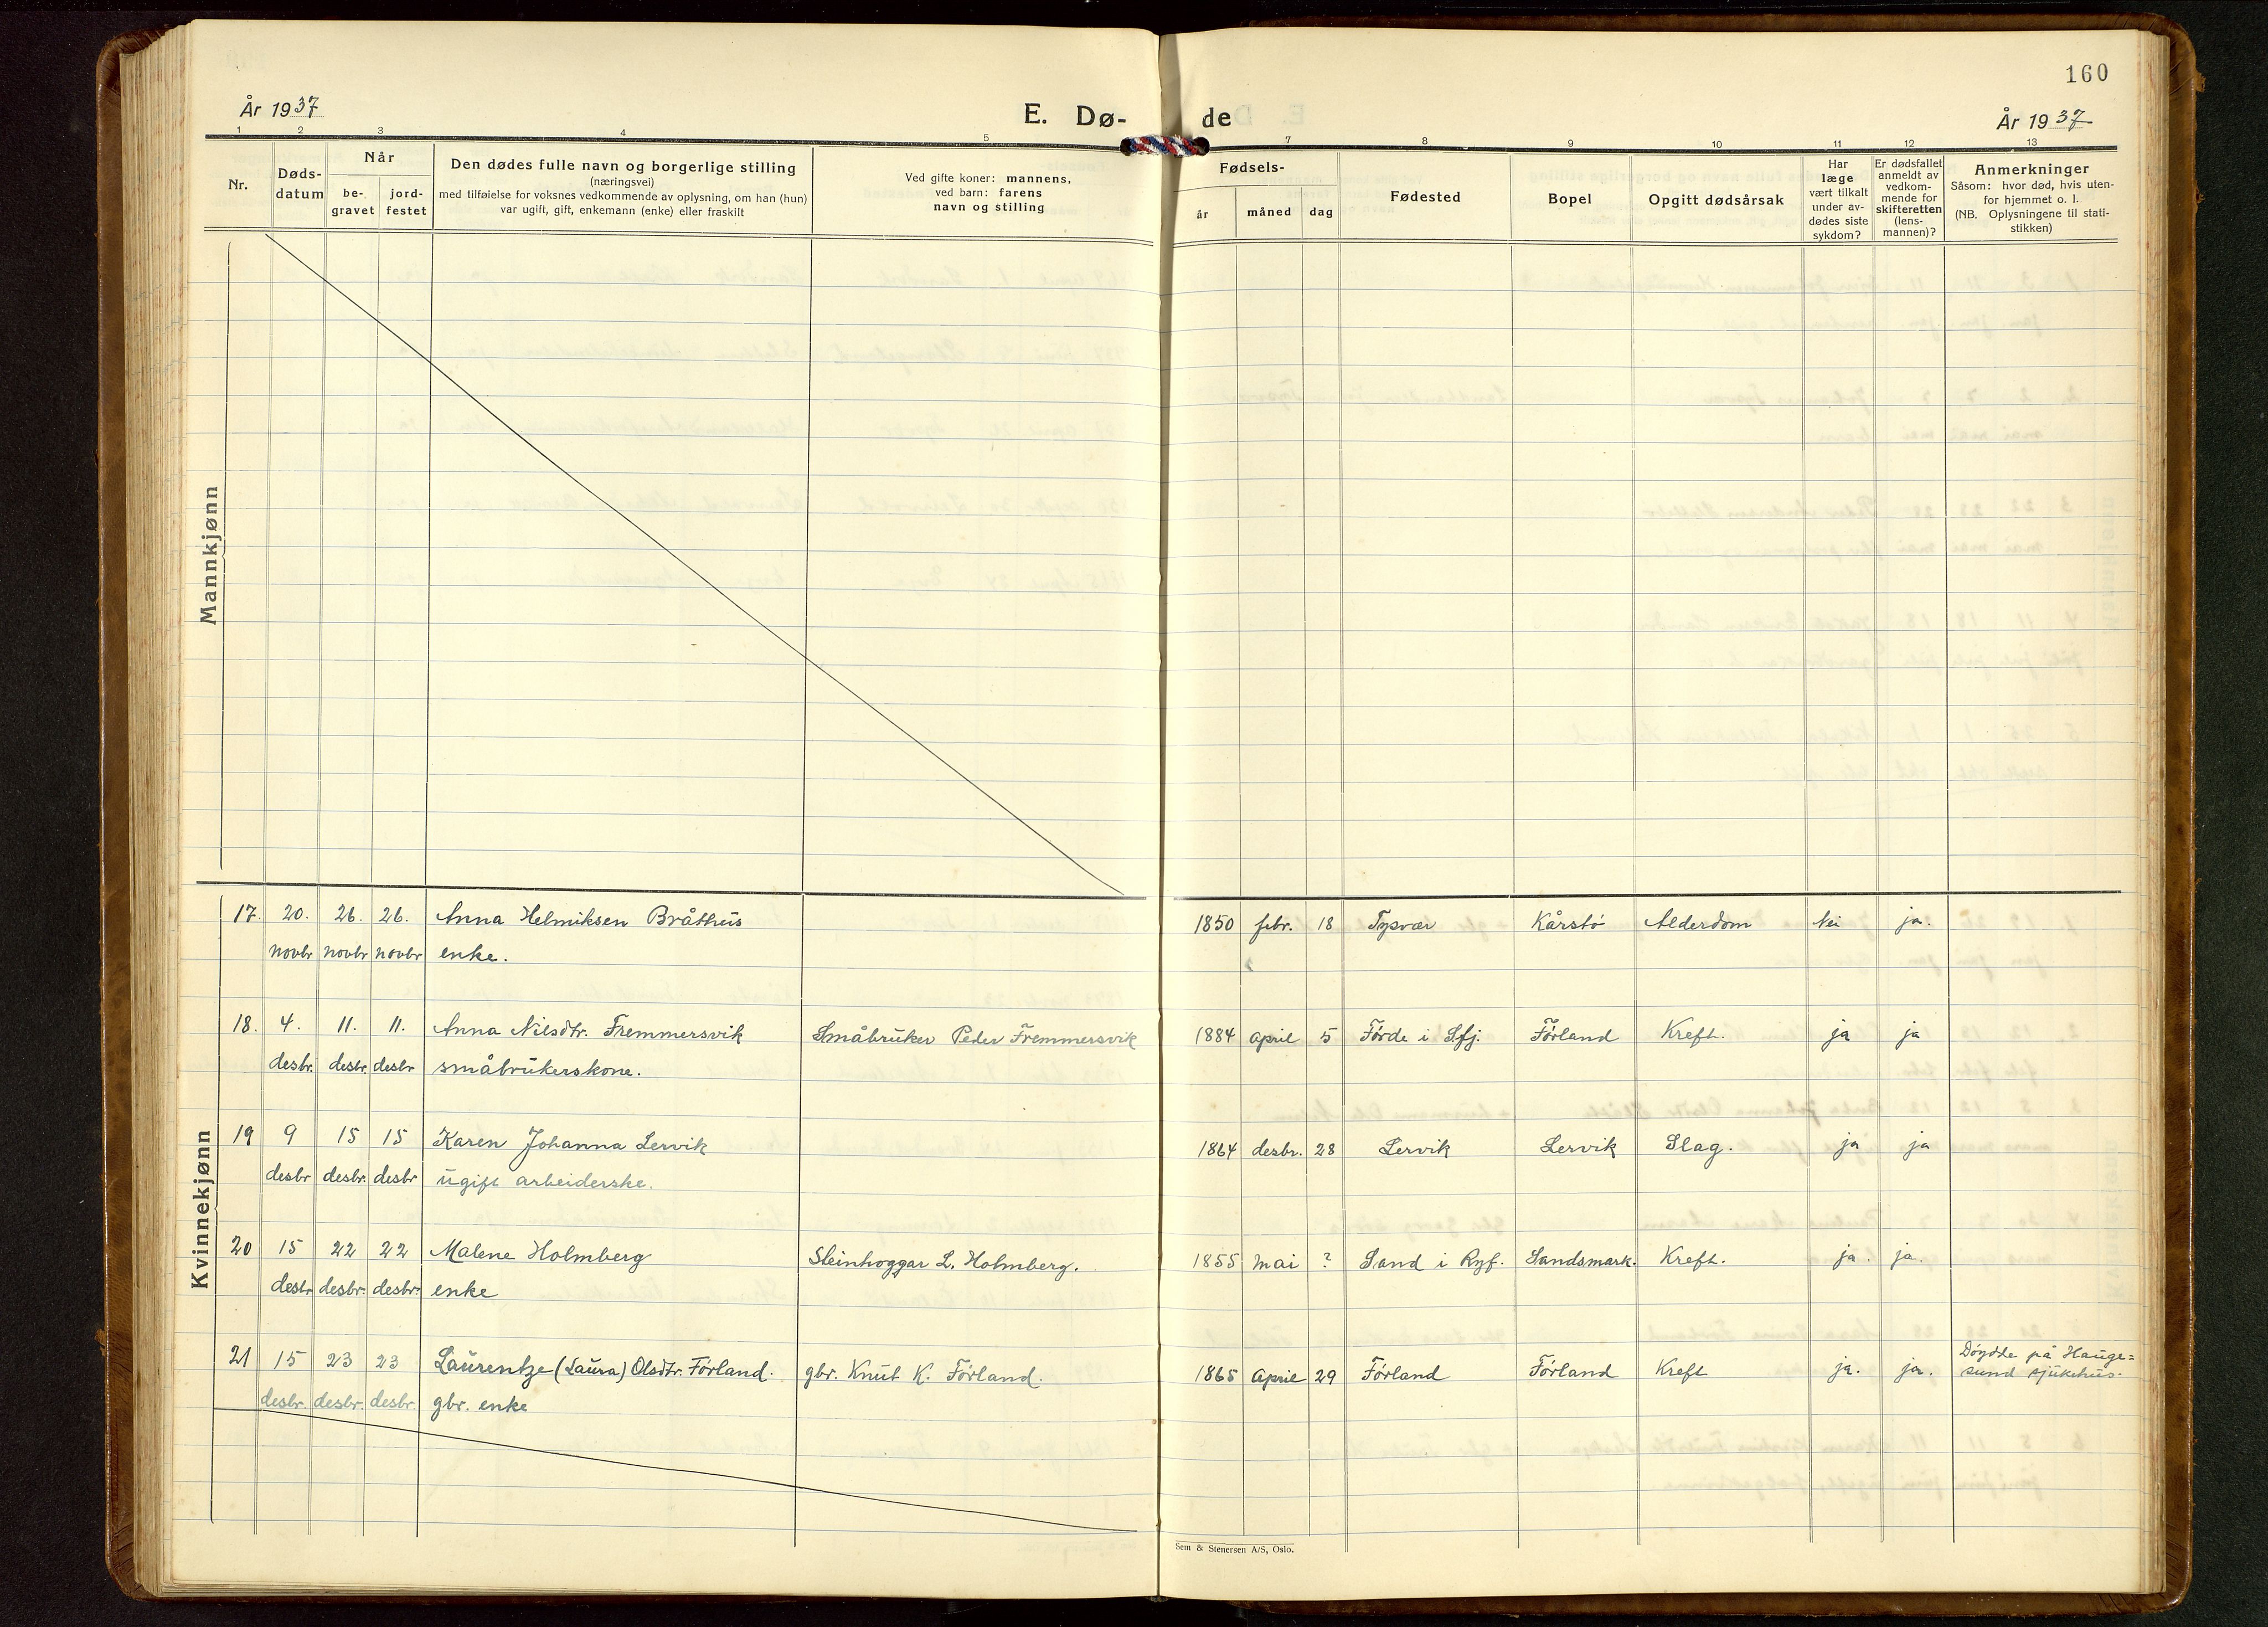 160
År 1937
E. Dø- de
År 1937
1 2 3 4 5 7 8 9 10 11 12 13
Nr.
Døds-
datum
Når
be-
gravet
jord-
festet
Den dødes fulle navn og borgerlige stilling
(næringsvei)
med tilføielse for voksnes vedkommende av oplysning, om han (hun)
var ugift, gift, enkemann (enke) eller fraskilt
Ved gifte koner: mannens,
ved barn: farens
navn og stilling
Fødsels-
år måned dag
Fødested
Bopel
Opgitt dødsårsak
Har
læge
vært tilkalt
under av-
dødes siste
sykdom?
Er dødsfallet
anmeldt av
vedkom-
mende for
skifteretten
(lens-
mannen)?
Anmerkninger
Såsom: hvor død, hvis uten-
for hjemmet o. l.
(NB. Oplysningene til stati-
stikken)
Mannkjønn
Kvinnekjønn
17. 20. 26. 26. Anna Helmiksen Bråthus 1850 febr. 18 Tysvær Kårstö Alderdom Nei ja.
novbr novbr novbr enke.
18. 4. 11. 11. Anna Nilsdtr. Fremmersvik Småbruker Peder Fremmersvik 1884 april 5 Förde i S.fj. Förland Kreft. ja ja
desbr. desbr. desbr småbrukerskone.
19 9 15 15 Karen Johanna Lervik 1864 desbr. 28 Lervik Lervik Slag. ja ja
desbr desbr. desbr ugift arbeiderske.
20 15 22 22 Malene Holmberg Steinhoggar L. Holmberg. 1855 mai ? Sand i Ryf. Sandsmark. Kreft. ja. ja.
desbr desbr. desbr. enke
21 15 23 23 Laurentze (Laura) Olsdtr. Förland. gbr. Knut K. Förland. 1865 April 29 Förland Förland Kreft ja. ja. Döydde på Hauge=
sund sjukehus.
desbr. desbr. desbr. gbr. enke
Sem & Stenersen A/S, Oslo.